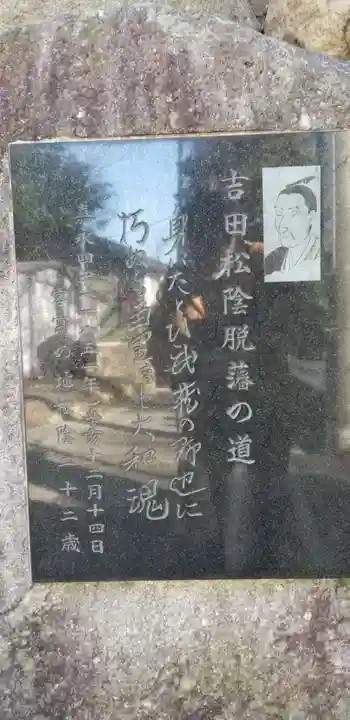 吉田松陰脱藩の道
身はたとひ武蔵の野辺に
朽ぬとも留置まし大和魂
嘉永四年(一八五一年)十二月十四日
の地 松陰二十二歳